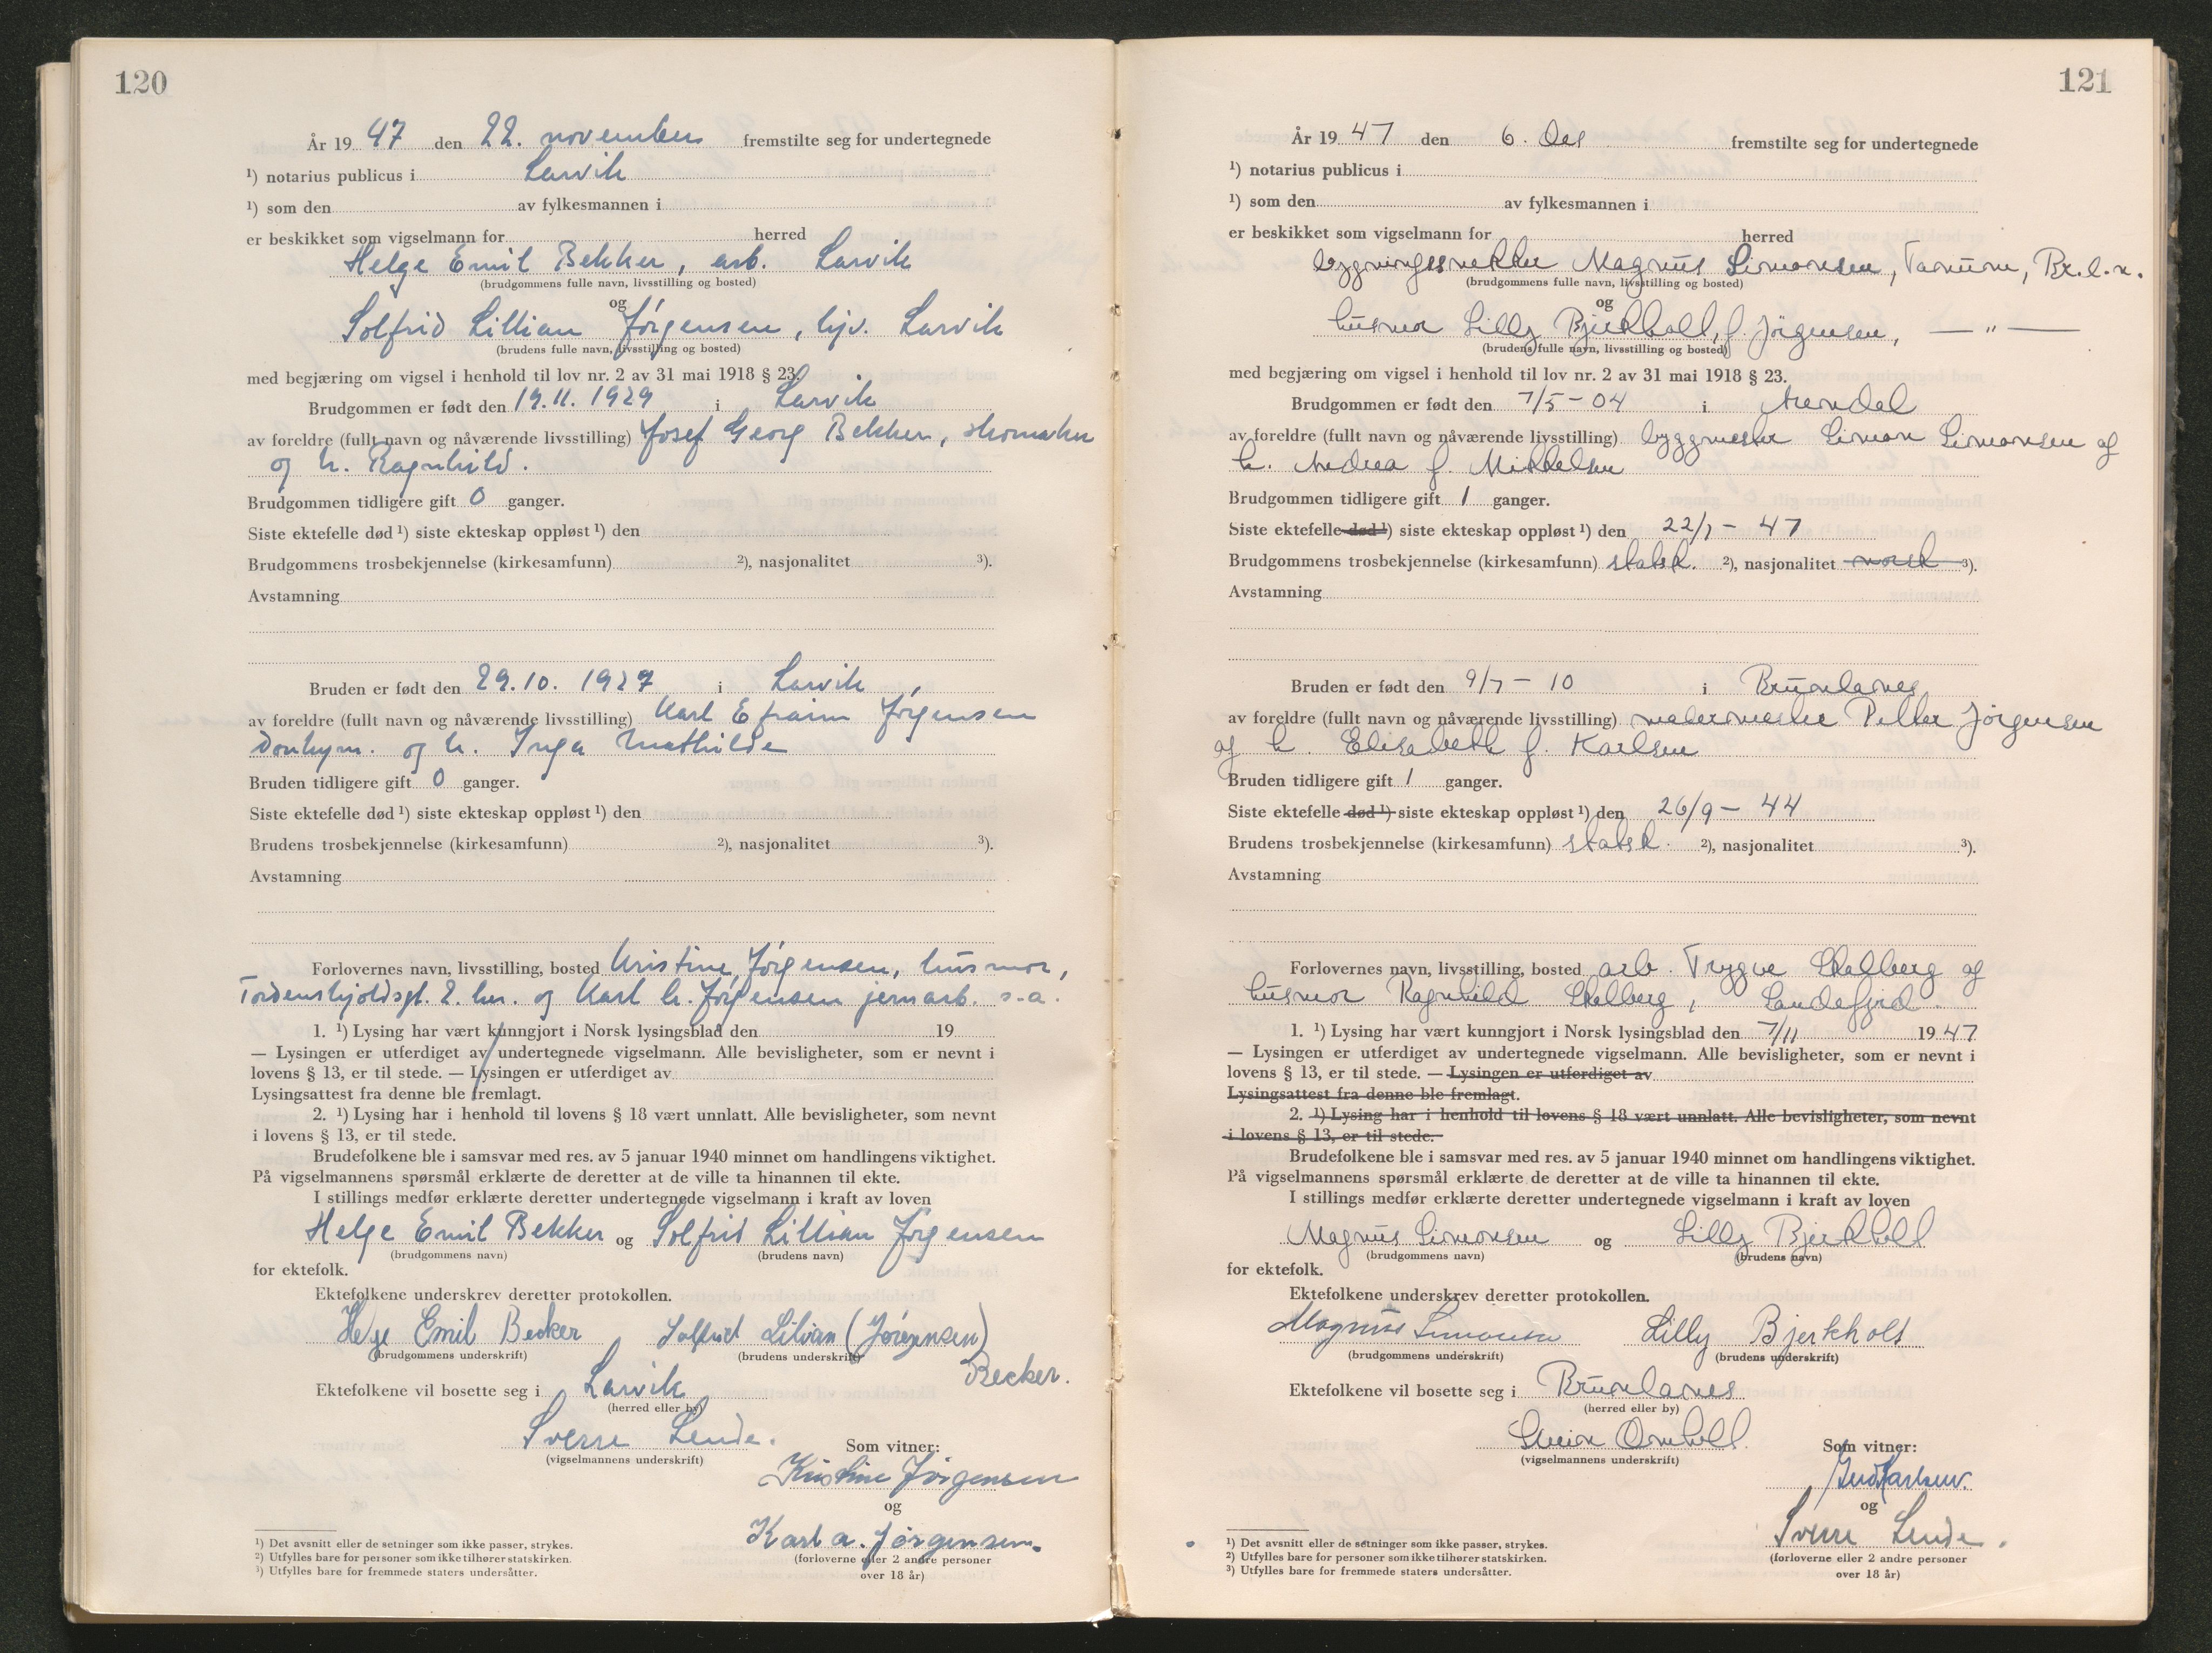 120
År 19 47 den 22. november fremstilte seg for undertegnede
¹) notarius publicus i Larvik
¹) som den av fylkesmannen i
er beskikket som vigselmann for herred
Helge Emil Bekker, arb. Larvik
(brudgommens fulle navn, livsstilling og bosted)
og
Solfrid Lillian Jørgensen, hjv. Larvik
(brudens fulle navn, livsstilling og bosted)
med begjæring om vigsel i henhold til lov nr. 2 av 31 mai 1918 § 23.
Brudgommen er født den 19.11. 1929 i Larvik
av foreldre (fullt navn og nåværende livsstilling) Josef Georg Bekker, skomaker
og h. Ragnhild.
Brudgommen tidligere gift 0 ganger.
Siste ektefelle død ¹) siste ekteskap oppløst ¹) den
Brudgommens trosbekjennelse (kirkesamfunn) ²), nasjonalitet ³).
Avstamning
Bruden er født den 29.10. 1927 i Larvik
av foreldre (fullt navn og nåværende livsstilling) Karl Efraim Jørgensen
donkym. og h. Inga Mathilde
Bruden tidligere gift 0 ganger.
Siste ektefelle død ¹) siste ekteskap oppløst ¹) den
Brudens trosbekjennelse (kirkesamfunn) ²), nasjonalitet ³).
Avstamning
Forlovernes navn, livsstilling, bosted Kristine Jørgensen, husmor,
Tordenskjoldsgt. 2. lvr. og Karl A. Jørgensen jernarb. s.a.
1. ¹) Lysing har vært kunngjort i Norsk lysingsblad den 19
— Lysingen er utferdiget av undertegnede vigselmann. Alle bevisligheter, som er nevnt i
lovens § 13, er til stede. — Lysingen er utferdiget av
Lysingsattest fra denne ble fremlagt.
2. ¹) Lysing har i henhold til lovens § 18 vært unnlatt. Alle bevisligheter, som nevnt
i lovens § 13, er til stede.
Brudefolkene ble i samsvar med res. av 5 januar 1940 minnet om handlingens viktighet.
På vigselmannens spørsmål erklærte de deretter at de ville ta hinannen til ekte.
I stillings medfør erklærte deretter undertegnede vigselmann i kraft av loven
Helge Emil Bekker og Solfrid Lillian Jørgensen
(brudgommens navn) (brudens navn)
for ektefolk.
Ektefolkene underskrev deretter protokollen.
Helge Emil Becker Solfrid Lilian (Jørgensen)
(brudgommens underskrift) (brudens underskrift)
Becker.
Ektefolkene vil bosette seg i Larvik
(herred eller by)
Sverre Lende.
(vigselmannens underskrift)
Som vitner:
Kristine Jørgensen
og
Karl A. Jørgensen.
(forloverne eller 2 andre personer
over 18 år)
¹) Det avsnitt eller de setninger som ikke passer, strykes.
²) Utfylles bare for personer som ikke tilhører statskirken.
³) Utfylles bare for fremmede staters undersåtter.
121
År 19 47 den 6. des fremstilte seg for undertegnede
¹) notarius publicus i
¹) som den av fylkesmannen i
er beskikket som vigselmann for herred
bygningssnekker Magnus Simonsen, Tanum, Br.l.n.
(brudgommens fulle navn, livsstilling og bosted)
og
husmor Lilly Bjerkholt, f. Jörgensen, — " —
(brudens fulle navn, livsstilling og bosted)
med begjæring om vigsel i henhold til lov nr. 2 av 31 mai 1918 § 23.
Brudgommen er født den 7/5 - 04 i Arendal
av foreldre (fullt navn og nåværende livsstilling) byggmester Simon Simonsen og
h. Andrea f. Mikkelsen
Brudgommen tidligere gift 1 ganger.
Siste ektefelle død ¹) siste ekteskap oppløst ¹) den 22/7 - 47
Brudgommens trosbekjennelse (kirkesamfunn) statsk. ²), nasjonalitet norsk ³).
Avstamning
Bruden er født den 9/7 - 10 i Brunlanes
av foreldre (fullt navn og nåværende livsstilling) malermester Petter Jörgensen
og h. Elisabeth f. Karlsen
Bruden tidligere gift 1 ganger.
Siste ektefelle død ¹) siste ekteskap oppløst ¹) den 26/9 - 44
Brudens trosbekjennelse (kirkesamfunn) statsk. ²), nasjonalitet ³).
Avstamning
Forlovernes navn, livsstilling, bosted arb. Trygve Skalberg og
husmor Ragnhild Skalberg, Sandefjord
1. ¹) Lysing har vært kunngjort i Norsk lysingsblad den 7/11 19 47
— Lysingen er utferdiget av undertegnede vigselmann. Alle bevisligheter, som er nevnt i
lovens § 13, er til stede. — Lysingen er utferdiget av
Lysingsattest fra denne ble fremlagt.
2. ¹) Lysing har i henhold til lovens § 18 vært unnlatt. Alle bevisligheter, som nevnt
i lovens § 13, er til stede.
Brudefolkene ble i samsvar med res. av 5 januar 1940 minnet om handlingens viktighet.
På vigselmannens spørsmål erklærte de deretter at de ville ta hinannen til ekte.
I stillings medfør erklærte deretter undertegnede vigselmann i kraft av loven
Magnus Simonsen og Lilly Bjerkholt
(brudgommens navn) (brudens navn)
for ektefolk.
Ektefolkene underskrev deretter protokollen.
Magnus Simonsen Lilly Bjerkholt
(brudgommens underskrift) (brudens underskrift)
Ektefolkene vil bosette seg i Brunlanes
(herred eller by)
(vigselmannens underskrift)
Som vitner:
og
Sverre Lende.
(forloverne eller 2 andre personer
over 18 år)
¹) Det avsnitt eller de setninger som ikke passer, strykes.
²) Utfylles bare for personer som ikke tilhører statskirken.
³) Utfylles bare for fremmede staters undersåtter.